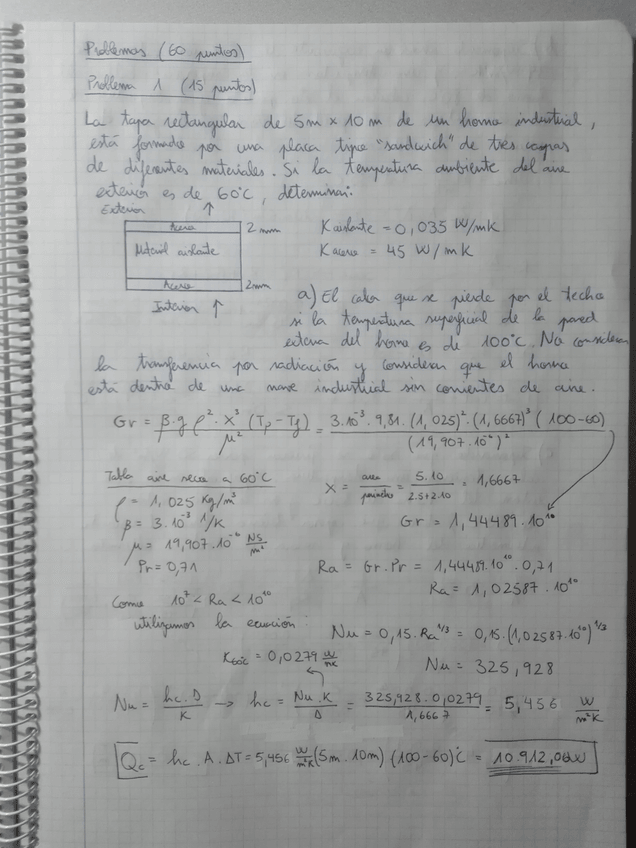 Problemas (60 puntos)
Problema 1 (15 puntos)
La tapa rectangular de 5m x 10 m de un horno industrial,
está formado por una placa tipo "sandwich" de tres capas
de diferentes materiales. Si la temperatura ambiente del aire
exterior es de 60°C, determinar:
Exterior ↑
Acero 2 mm
Material aislante
Acero 2mm
Interior ↑
K aislante = 0,035 W/mK
K acero = 45 W/mK
a) El calor que se pierde por el techo
si la temperatura superficial de la pared
externa del horno es de 100°C. No considerar
la transferencia por radiación y considerar que el horno
está dentro de una nave industrial sin corrientes de aire.
Gr = β·g ρ²·X³ (Tp - Tf) / μ² = 3·10⁻³·9,81·(1,025)²·(1,6667)³(100-60) / (19,907·10⁻⁶)²
Tabla aire seco a 60°C
ρ = 1,025 Kg/m³
β = 3·10⁻³ 1/K
μ = 19,907·10⁻⁶ NS/m²
Pr = 0,71
X = area / perímetro = 5·10 / 2·5+2·10 = 1,6667
Gr = 1,44489·10¹⁰
Ra = Gr·Pr = 1,44489·10¹⁰·0,71
Ra = 1,02587·10¹⁰
Como 10⁷ < Ra < 10¹⁰
utilizamos la ecuación:
Nu = 0,15·Ra^1/3 = 0,15·(1,02587·10¹⁰)^1/3
K60°C = 0,0279 W/mK
Nu = 325,928
Nu = hc·D / K → hc = Nu·K / D = 325,928·0,0279 / 1,6667 = 5,456 W/m²K
Qc = hc·A·ΔT = 5,456 W/m²K (5m·10m) (100-60)°C = 10.912,06W